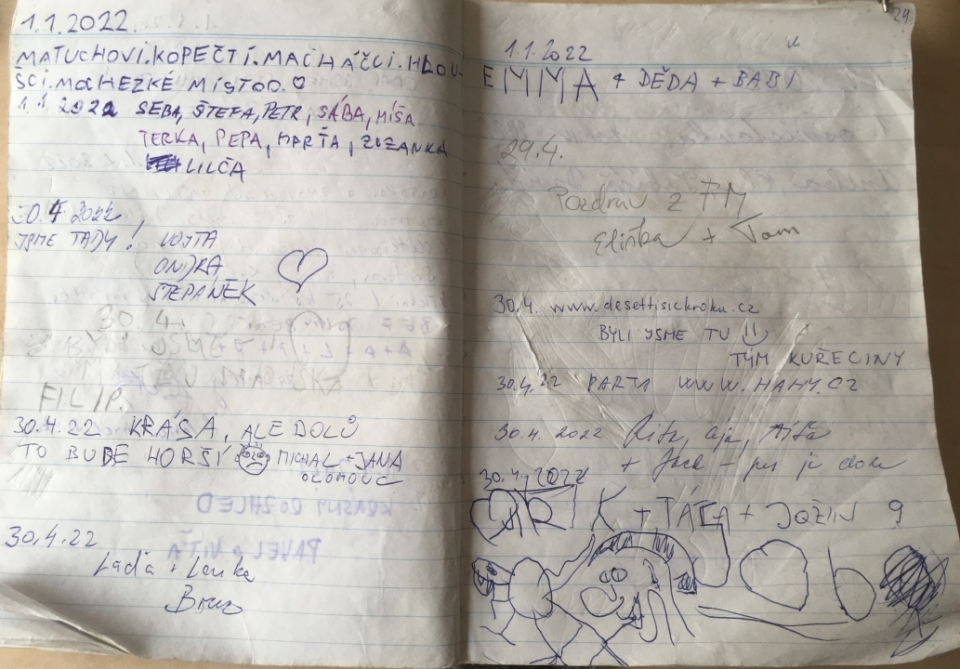 1.1.2022.
MATUCHOVI.KOPEČTÍ.MACHÁČCI.HLOU-
ŠCI.MOC HEZKÉ MÍSTOO.♡
1.1.2022 SEBA, ŠTEFA, PETR, SÁBA, MÍŠA
TERKA, PEPA, MARŤA, ZUZANKA
LILČA
30.4 2022
JSME TADY! VOJTA
ONDRA
ŠTĚPÁNEK
30.4.
FILIP.
30.4.22 KRÁSA, ALE DOLŮ
TO BUDE HORŠÍ MICHAL + JANA
OLOMOUC
30.4.22
Láďa + Lenka
Brno
24.
1.1.2022
EMMA + DĚDA + BABI
29.4.
Pozdrav z FM
Eliška + Tom
30.4. www.desettisickroku.cz
BYLI JSME TU
TÝM KUŘECINY
30.4.22 PARTA WWW.HAHY.CZ
30.4.2022
+ Jack - pes je doma
30.4.2022
K + TÁTA + JOŽIN 9